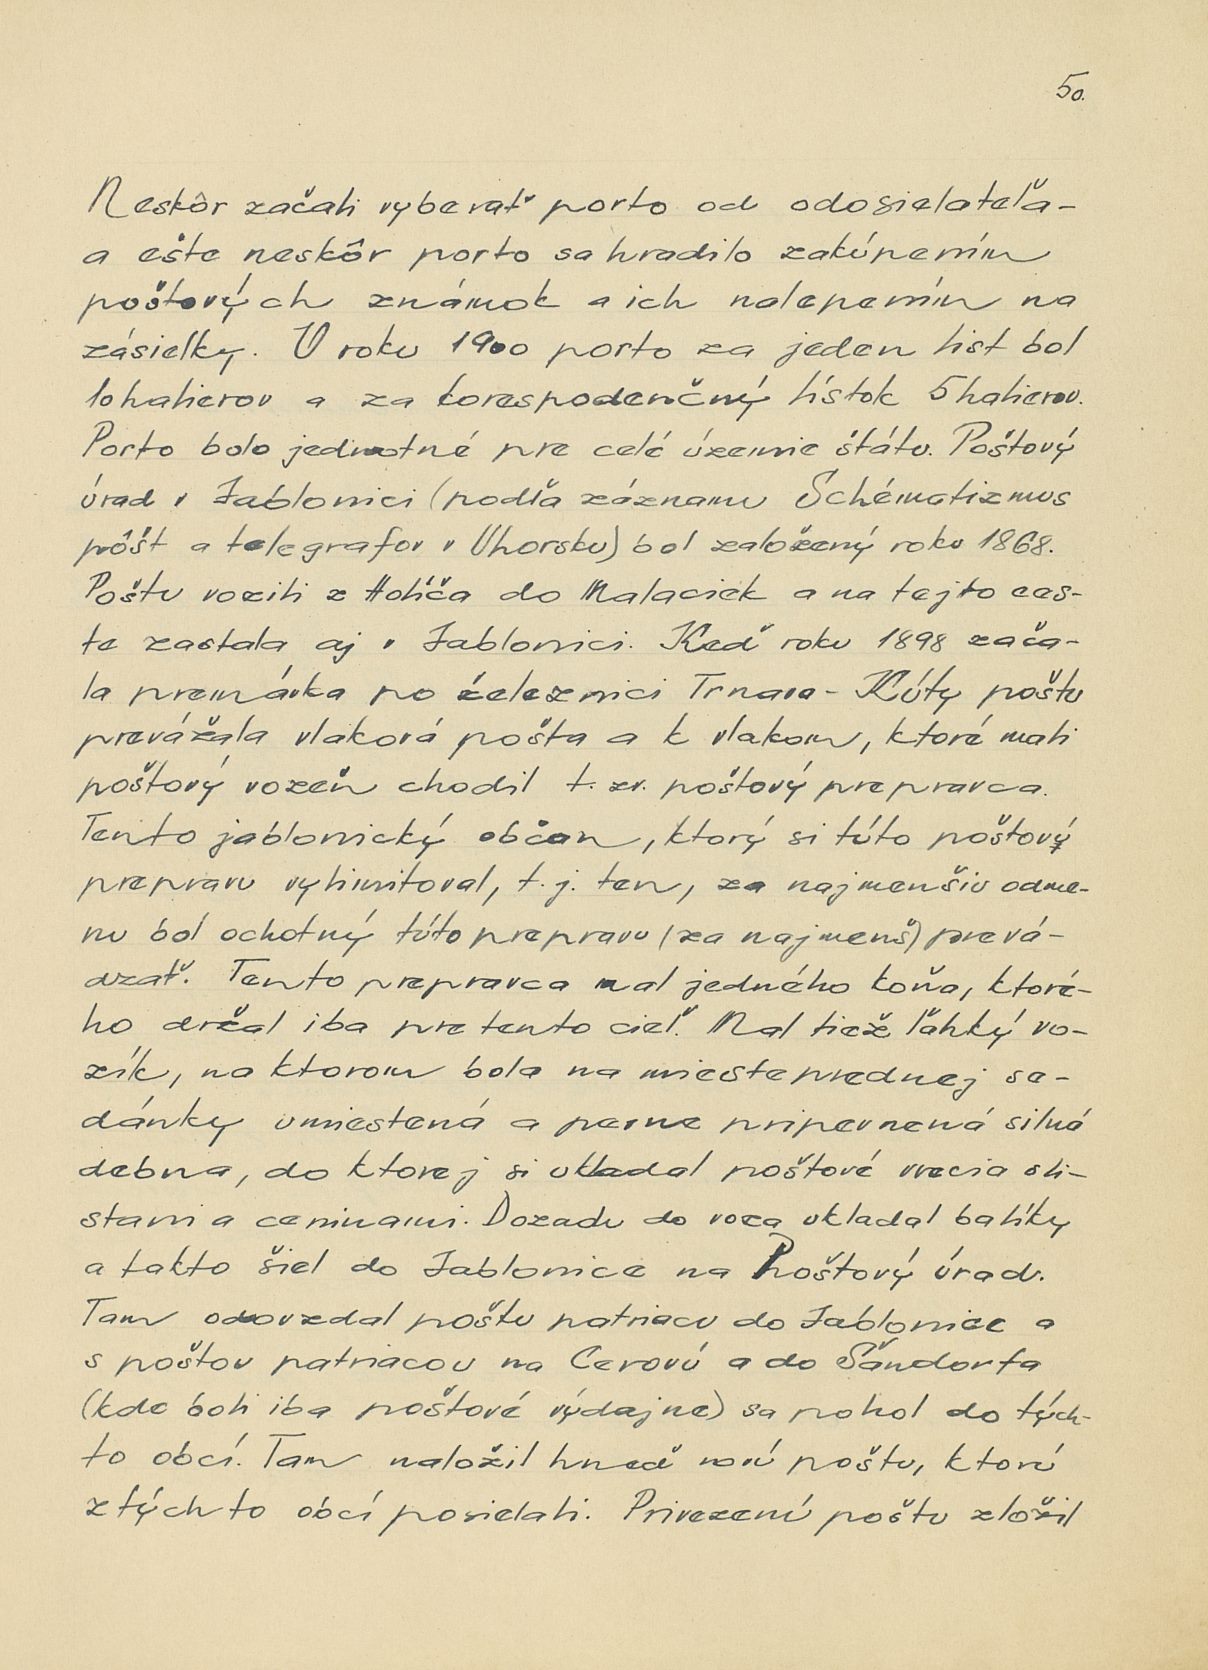 50.
Neskôr začali vyberať porto od odosielateľa-
a ešte neskôr porto sa hradilo zakúpením
poštových známok a ich nalepením na
zásielky. V roku 1900 porto za jeden list bol
10 halierov a za korespodenčný lístok 5 halierov.
Porto bolo jednotné pre celé územie štátu. Poštový
úrad v Jablonici (podľa záznamu Schématizmus
pôšt a telegrafov v Uhorsku) bol založený roku 1868.
Poštu vozili z Holíča do Malaciek a na tejto ces-
te zastala aj v Jablonici. Keď roku 1898 zača-
la premávka po železnici Trnava - Kúty poštu
prevážala vlaková pošta a k vlakom, ktoré mali
poštový vozeň chodil t. zv. poštový prepravca.
Tento jablonický občan, ktorý si túto poštový
prepravu vylimitoval, t. j. ten, za najmenšiu odme-
nu bol ochotný túto prepravu (za najmenš) prevá-
dzať. Tento prepravca mal jedného koňa, ktoré-
ho držal iba pre tento cieľ. Mal tiež ľahký vo-
zík, na ktorom bola na mieste prednej se-
dánky umiestená a pevne pripevnená silná
debna, do ktorej si ukladal poštové vrecia s li-
stami a ceninami. Dozadu do voza ukladal balíky
a takto šiel do Jablonice na Poštový úrad.
Tam odovzdal poštu patriacu do Jablonice a
s poštou patriacou na Cerovú a do Šándorfa
(kde boli iba poštové výdajne) sa pohol do tých-
to obcí. Tam naložil hneď novú poštu, ktorú
z týchto obcí posielali. Privezenú poštu zložil